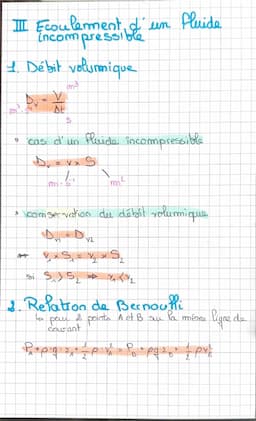 III Ecoulement d'un fluide
incompressible
1. Débit volumique
m³
Dv = V/Δt
m³.s⁻¹
s
cas d'un fluide incompressible
Dv = v × S
m.s⁻¹ m²
conservation du débit volumique
Dv1 = Dv2
⇔ v₁ × S₁ = v₂ × S₂
si S₁ > S₂ ⇒ v₁ < v₂
2. Relation de Bernoulli
↳ pour 2 points A et B sur la même ligne de
courant